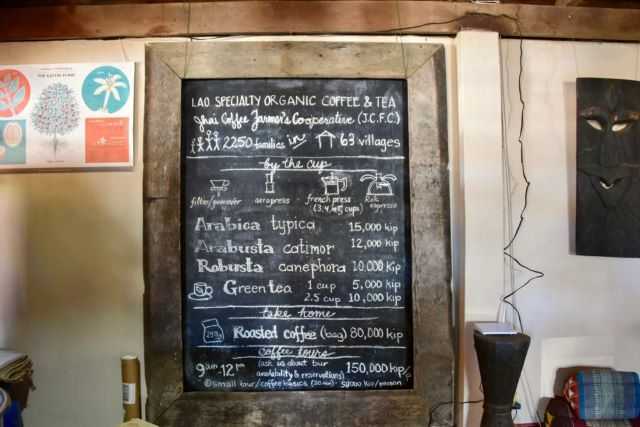 THE COFFEE PLANT
LAO SPECIALTY ORGANIC COFFEE & TEA
Jhai Coffee Farmer's Cooperative (J.C.F.C.)
2250 families in 63 villages
by the cup
filter/pourover aeropress french press Rok
(3, 4, 8 cups) espresso
Arabica typica 15,000 kip
Arabusta catimor 12,000 kip
Robusta canephora 10,000 kip
Green tea 1 cup 5,000 kip
2.5 cup 10,000 kip
take home
250g Roasted coffee (bag) 80,000 kip
coffee tours
9am-12pm (ask us about tour
availability & reservations) 150,000 kip/p
small tour/coffee basics 50,000 kip/person